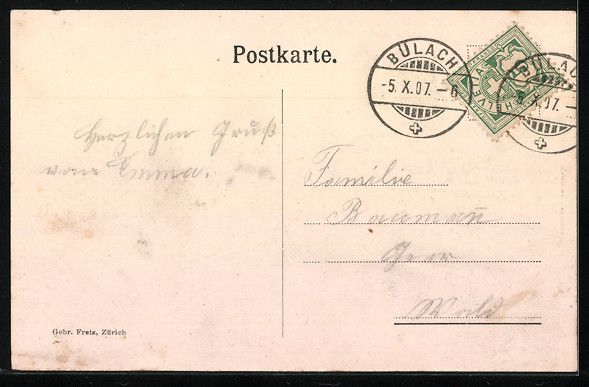 Postkarte.
BÜLACH
-5.X.07.-6
HELVETIA
BÜLACH
5.X.07.
Herzlichen Gruß
von Emma.
Familie
Baumann
Wald
Gebr. Fretz, Zürich